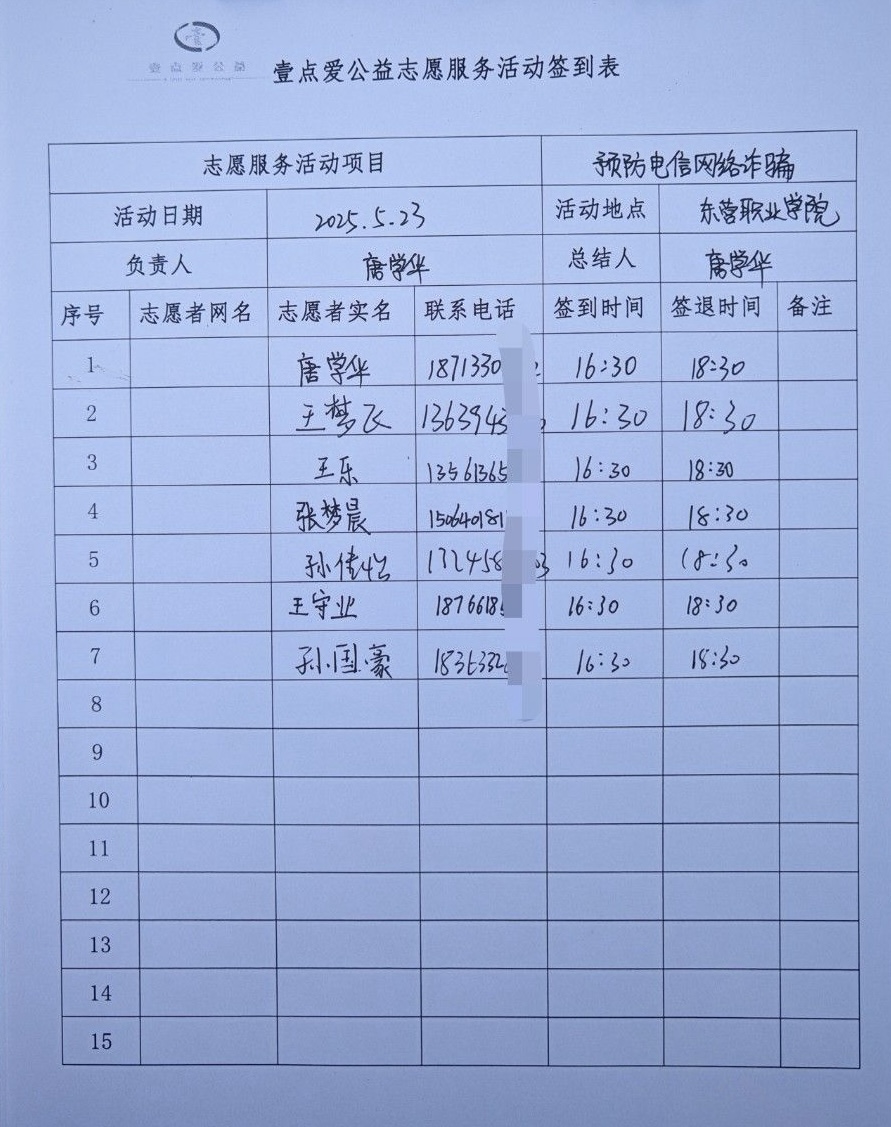 壹点爱公益
壹点爱公益志愿服务活动签到表
志愿服务活动项目 预防电信网络诈骗
活动日期 2025.5.23 活动地点 东营职业学院
负责人 唐学华 总结人 唐学华
序号 志愿者网名 志愿者实名 联系电话 签到时间 签退时间 备注
1 唐学华 1871330 16:30 18:30
2 王梦飞 1363943 16:30 18:30
3 王乐 13561365 16:30 18:30
4 张梦晨 150640181 16:30 18:30
5 孙倩怡 132458 03 16:30 18:30
6 王守业 1876618 16:30 18:30
7 孙国豪 1836332 16:30 18:30
8
9
10
11
12
13
14
15